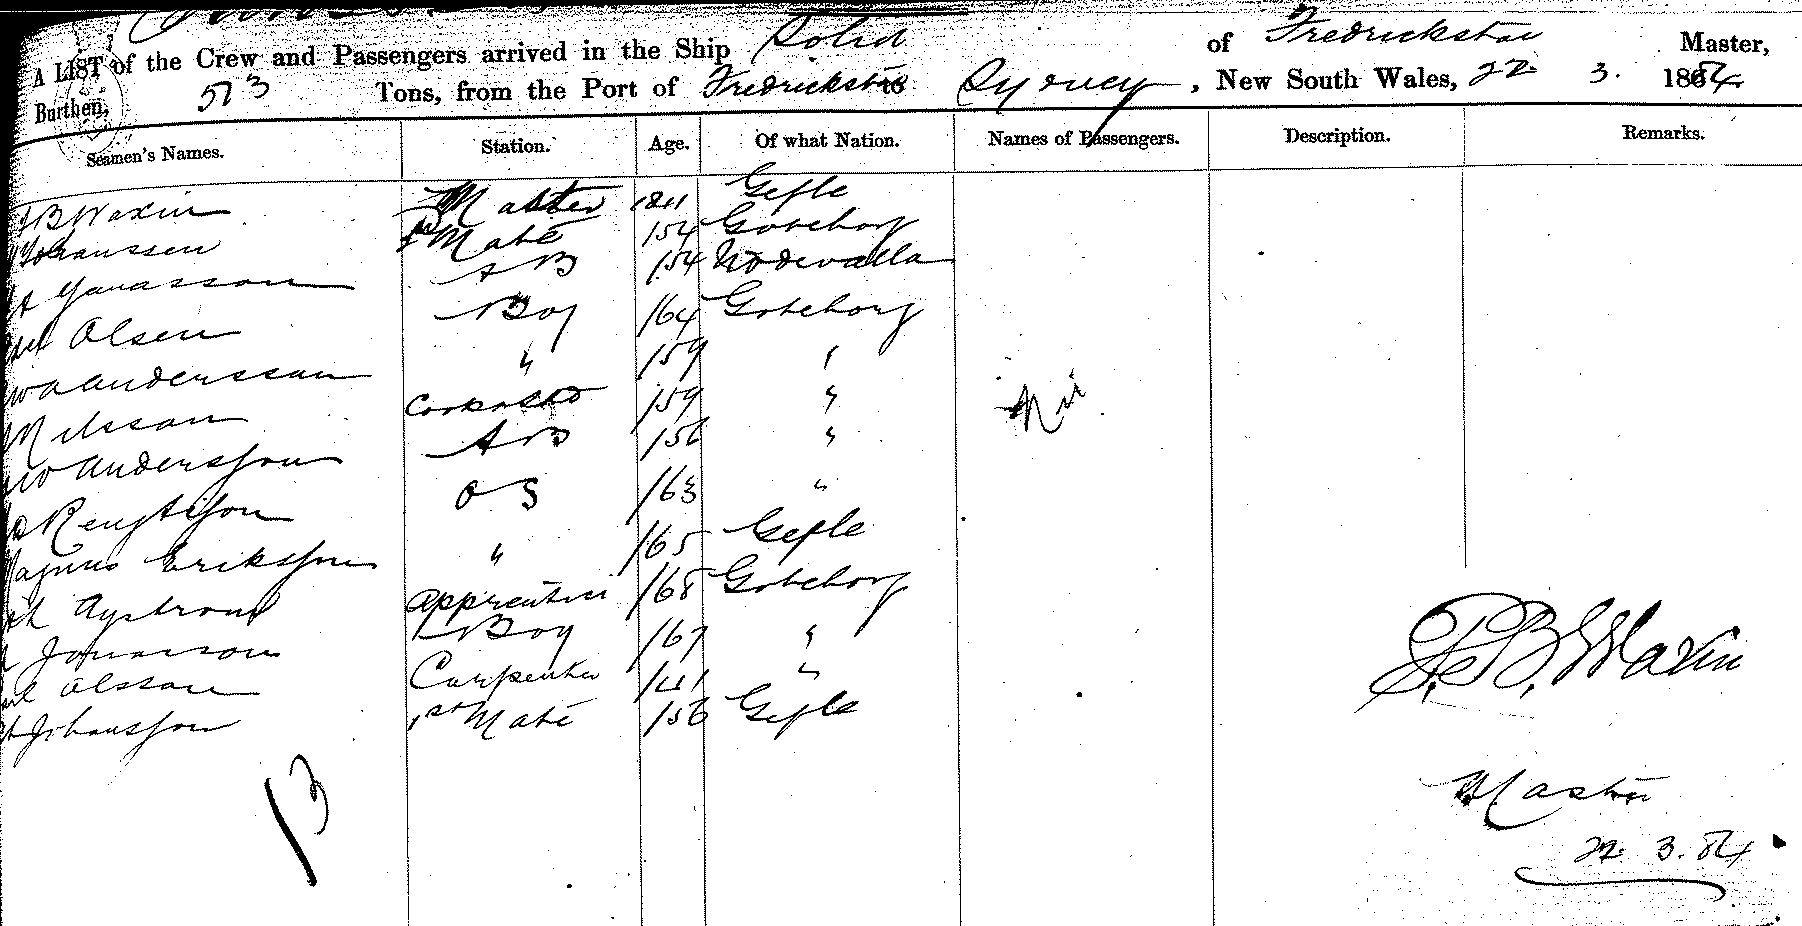 A LIST of the Crew and Passengers arrived in the Ship Solid of Fredrickstae Master,
Burthen, 513 Tons, from the Port of Fredrickstae to Sydney, New South Wales, 22. 3. 1884
Seamen's Names. Station. Age. Of what Nation. Names of Passengers. Description. Remarks.
B Waxin Master Gefle
Johanssen Mate 154 Goteborg
Jonasson AB 154 Uddevalla
Olsen Boy 164 Goteborg
Anderssan " 159 "
Nilsson Cook 159 " Nil
Andersson AB 156 "
Bengtsson OS 163 "
Magnus Eriksson " 165 Gefle
Nystrom Apprentice 168 Goteborg
Jonasson Boy 167 "
Olsson Carpenter 141 "
Johansson 1st Mate 156 Gefle
13
P. B. Waxin
Master
22. 3. 84